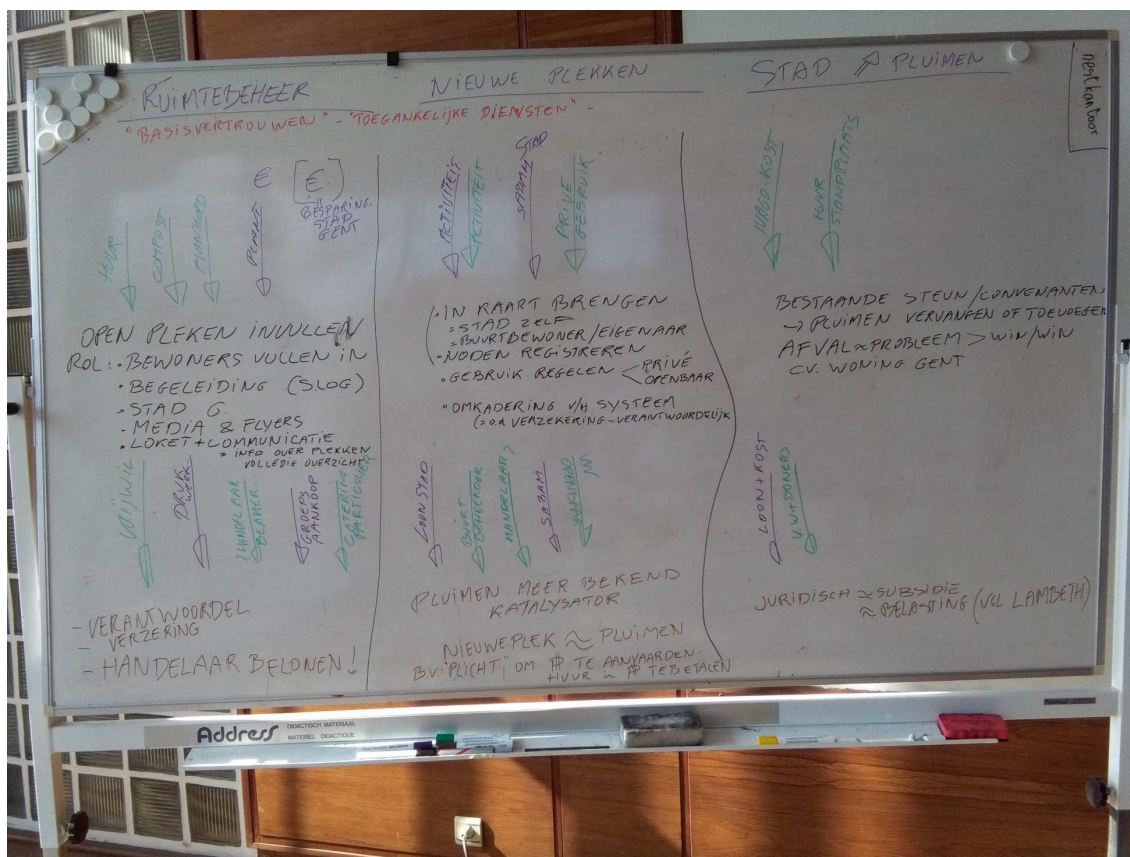 RUIMTEBEHEER
"BASISVERTROUWEN" - "TOEGANKELIJKE DIENSTEN" -
€ [€]
BESPARING
STAD
GENT
HULP
COMPOST
PLANT
OPEN PLEKEN INVULLEN
ROL: · BEWONERS VULLEN IN
· BEGELEIDING (SLOG)
· STAD G.
· MEDIA & FLYERS
· LOKET + COMMUNICATIE
= INFO OVER PLEKKEN
VOLLEDIG OVERZICHT
VRIJWIL
DRUK
WERK
HANDELAAR
GROEPS
AANKOOP
CATERING
PARTICULIER
- VERANTWOORDEL
- VERZERING
- HANDELAAR BELONEN!
NIEUWE PLEKKEN
ACTIVITEIT
ACTIVITEIT
SABAM STAD
PRIVÉ
GEBRUIK
· IN KAART BRENGEN
= STAD ZELF
= BUURTBEWONER/EIGENAAR
· NODEN REGISTREREN
· GEBRUIK REGELEN < PRIVÉ
OPENBAAR
· OMKADERING V/H SYSTEEM
(= o.a VERZEKERING - VERANTWOORDELIJK
LOON STAD
BUURT
BEHEERDER
HANDELAAR?
SABAM
PLUIMEN MEER BEKEND
KATALYSATOR
NIEUWE PLEK ≈ PLUIMEN
BV: "PLICHT" OM TE AANVAARDEN.
HUUR TE BETALEN
STAD ⇗ PLUIMEN
HUUR
STANDPLAATS
BESTAANDE STEUN/CONVENANTEN
→ PLUIMEN VERVANGEN OF TOEVOEGEN
AFVAL ≈ PROBLEEM > WIN/WIN
C.V. WONING GENT
LOON + KOST
JURIDISCH ≈ SUBSIDIE
≈ BELASTING (VGL LAMBETH)
nestkantoor
Address
DIDACTISCH MATERIAAL
MATERIEL DIDACTIQUE